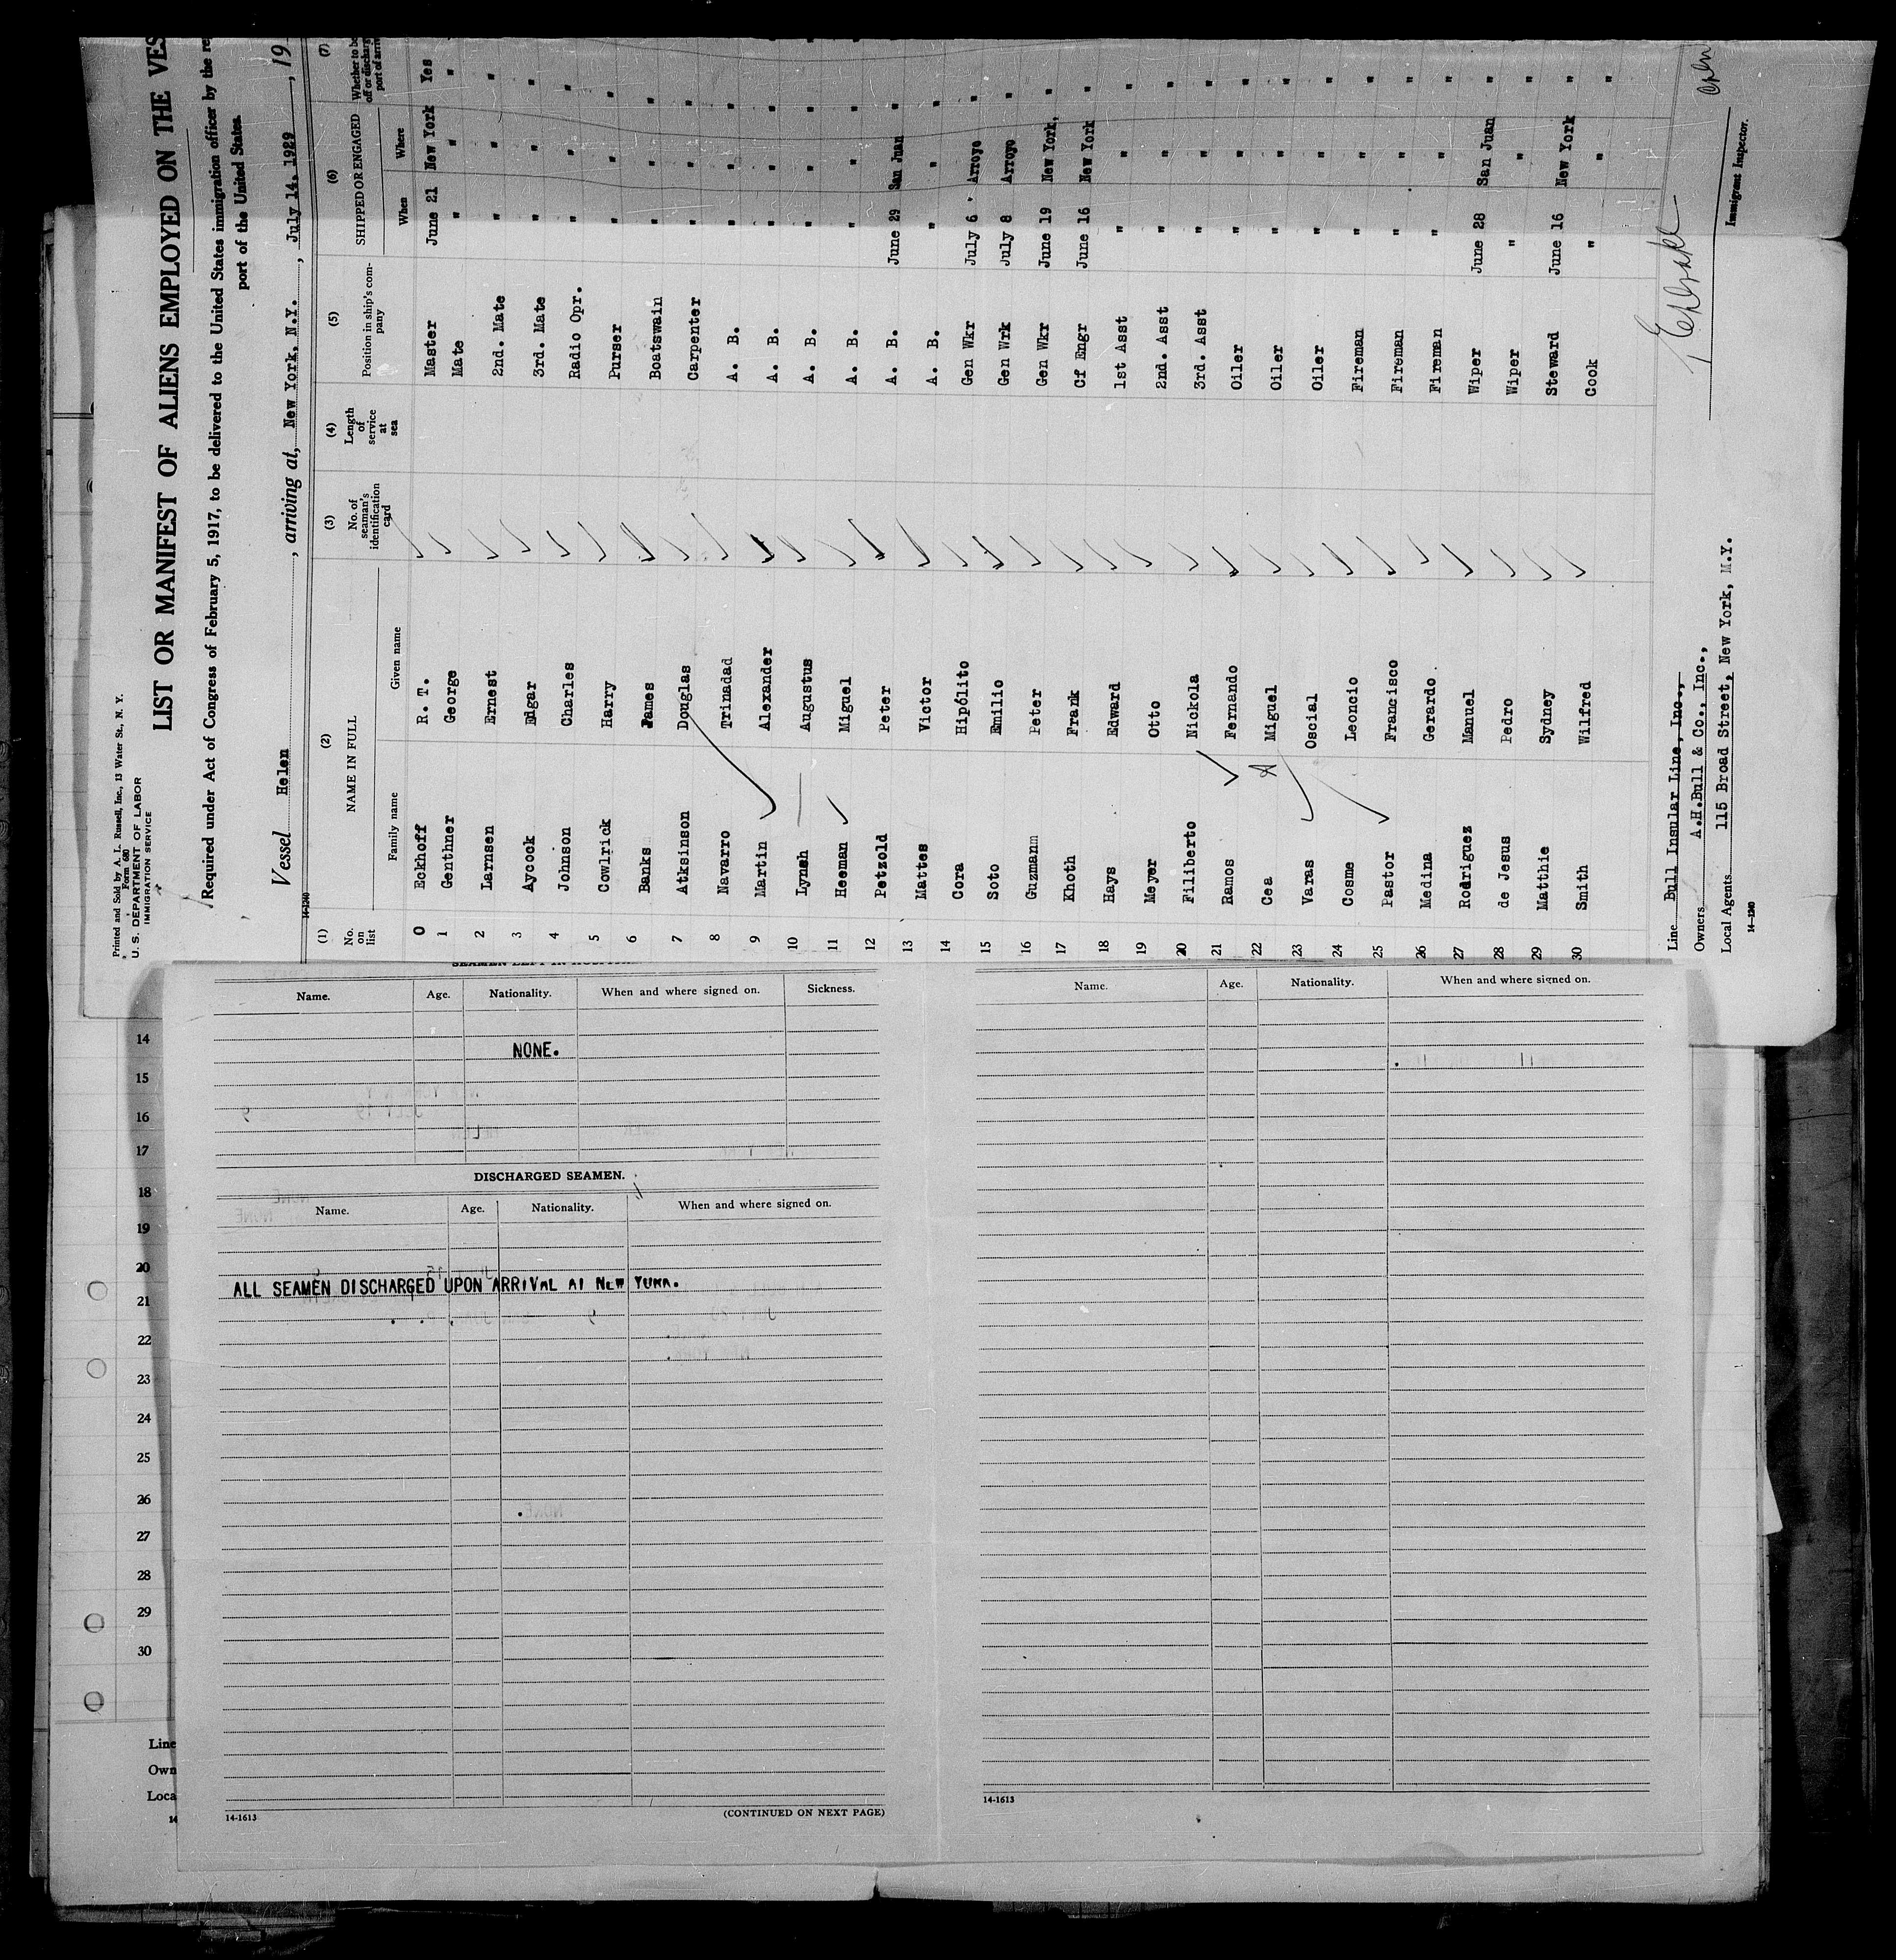 Printed and Sold by A. L. Russell, Inc., 13 Water St., N. Y.
Form 680
U. S. DEPARTMENT OF LABOR
IMMIGRATION SERVICE
LIST OR MANIFEST OF ALIENS EMPLOYED ON THE VES
Required under Act of Congress of February 5, 1917, to be delivered to the United States immigration officer by the re
port of the United States.
Vessel Helen, arriving at, New York. N.Y., July 14. 1929, 19
14-1240
(1) (2) (3) (4) (5) (6) (7)
No. on list NAME IN FULL No. of seaman's identification card Length of service at sea Position in ship's company SHIPPED OR ENGAGED Whether to be
off or discharg
port of arriv
Family name Given name When Where
0 Eckhoff R. T. Master June 21 New York Yes
1 Genthner George Mate " " "
2 Larnsen Ernest 2nd. Mate " " "
3 Aycock Edgar 3rd. Mate " " "
4 Johnson Charles Radio Opr. " " "
5 Cowlrick Harry Purser " " "
6 Banks James Boatswain " " "
7 Atksinson Douglas Carpenter " " "
8 Navarro Trinadad A. B. " " "
9 Martin Alexander A. B. " " "
10 Lynsh Augustus A. B. " " "
11 Heeman Miguel A. B. " " "
12 Petzold Peter A. B. June 29 San Juan "
13 Mattes Victor A. B. " " "
14 Cora Hipólito Gen Wkr July 6 Arroyo "
15 Soto Emilio Gen Wrk July 8 Arroyo "
16 Guzmanm Peter Gen Wkr June 19 New York, "
17 Khoth Frank Cf Engr June 16 New York "
18 Hays Edward 1st Asst " " "
19 Meyer Otto 2nd. Asst " " "
20 Filiberto Nickola 3rd. Asst " " "
21 Ramos Fernando Oiler " " "
22 Cea Miguel Oiler " " "
23 Varas Oscial Oiler " " "
24 Cosme Leoncio Fireman " " "
25 Pastor Francisco Fireman " " "
26 Medina Gerardo Fireman " " "
27 Rodriguez Manuel Wiper June 28 San Juan "
28 de Jesus Pedro Wiper " " "
29 Matthie Sydney Steward June 16 New York "
30 Smith Wilfred Cook " " "
Line Bull Insular Line, Inc.,
Owners A.H.Bull & Co., Inc.,
Local Agents 115 Broad Street, New York, M.Y.
14-1240
Immigrant Inspector.
Name. Age. Nationality. When and where signed on. Sickness.
NONE.
DISCHARGED SEAMEN.
Name. Age. Nationality. When and where signed on.
ALL SEAMEN DISCHARGED UPON ARRIVAL AT NEW YORK.
14-1613
(CONTINUED ON NEXT PAGE)
Name. Age. Nationality. When and where signed on.
14-1613
14
15
16
17
18
19
20
21
22
23
24
25
26
27
28
29
30
Line
Own
Loca
14